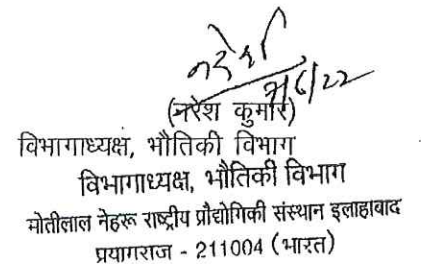 नरेश
7/6/22
(नरेश कुमार)
विभागाध्यक्ष, भौतिकी विभाग
विभागाध्यक्ष, भौतिकी विभाग
मोतीलाल नेहरू राष्ट्रीय प्रौद्योगिकी संस्थान इलाहाबाद
प्रयागराज - 211004 (भारत)